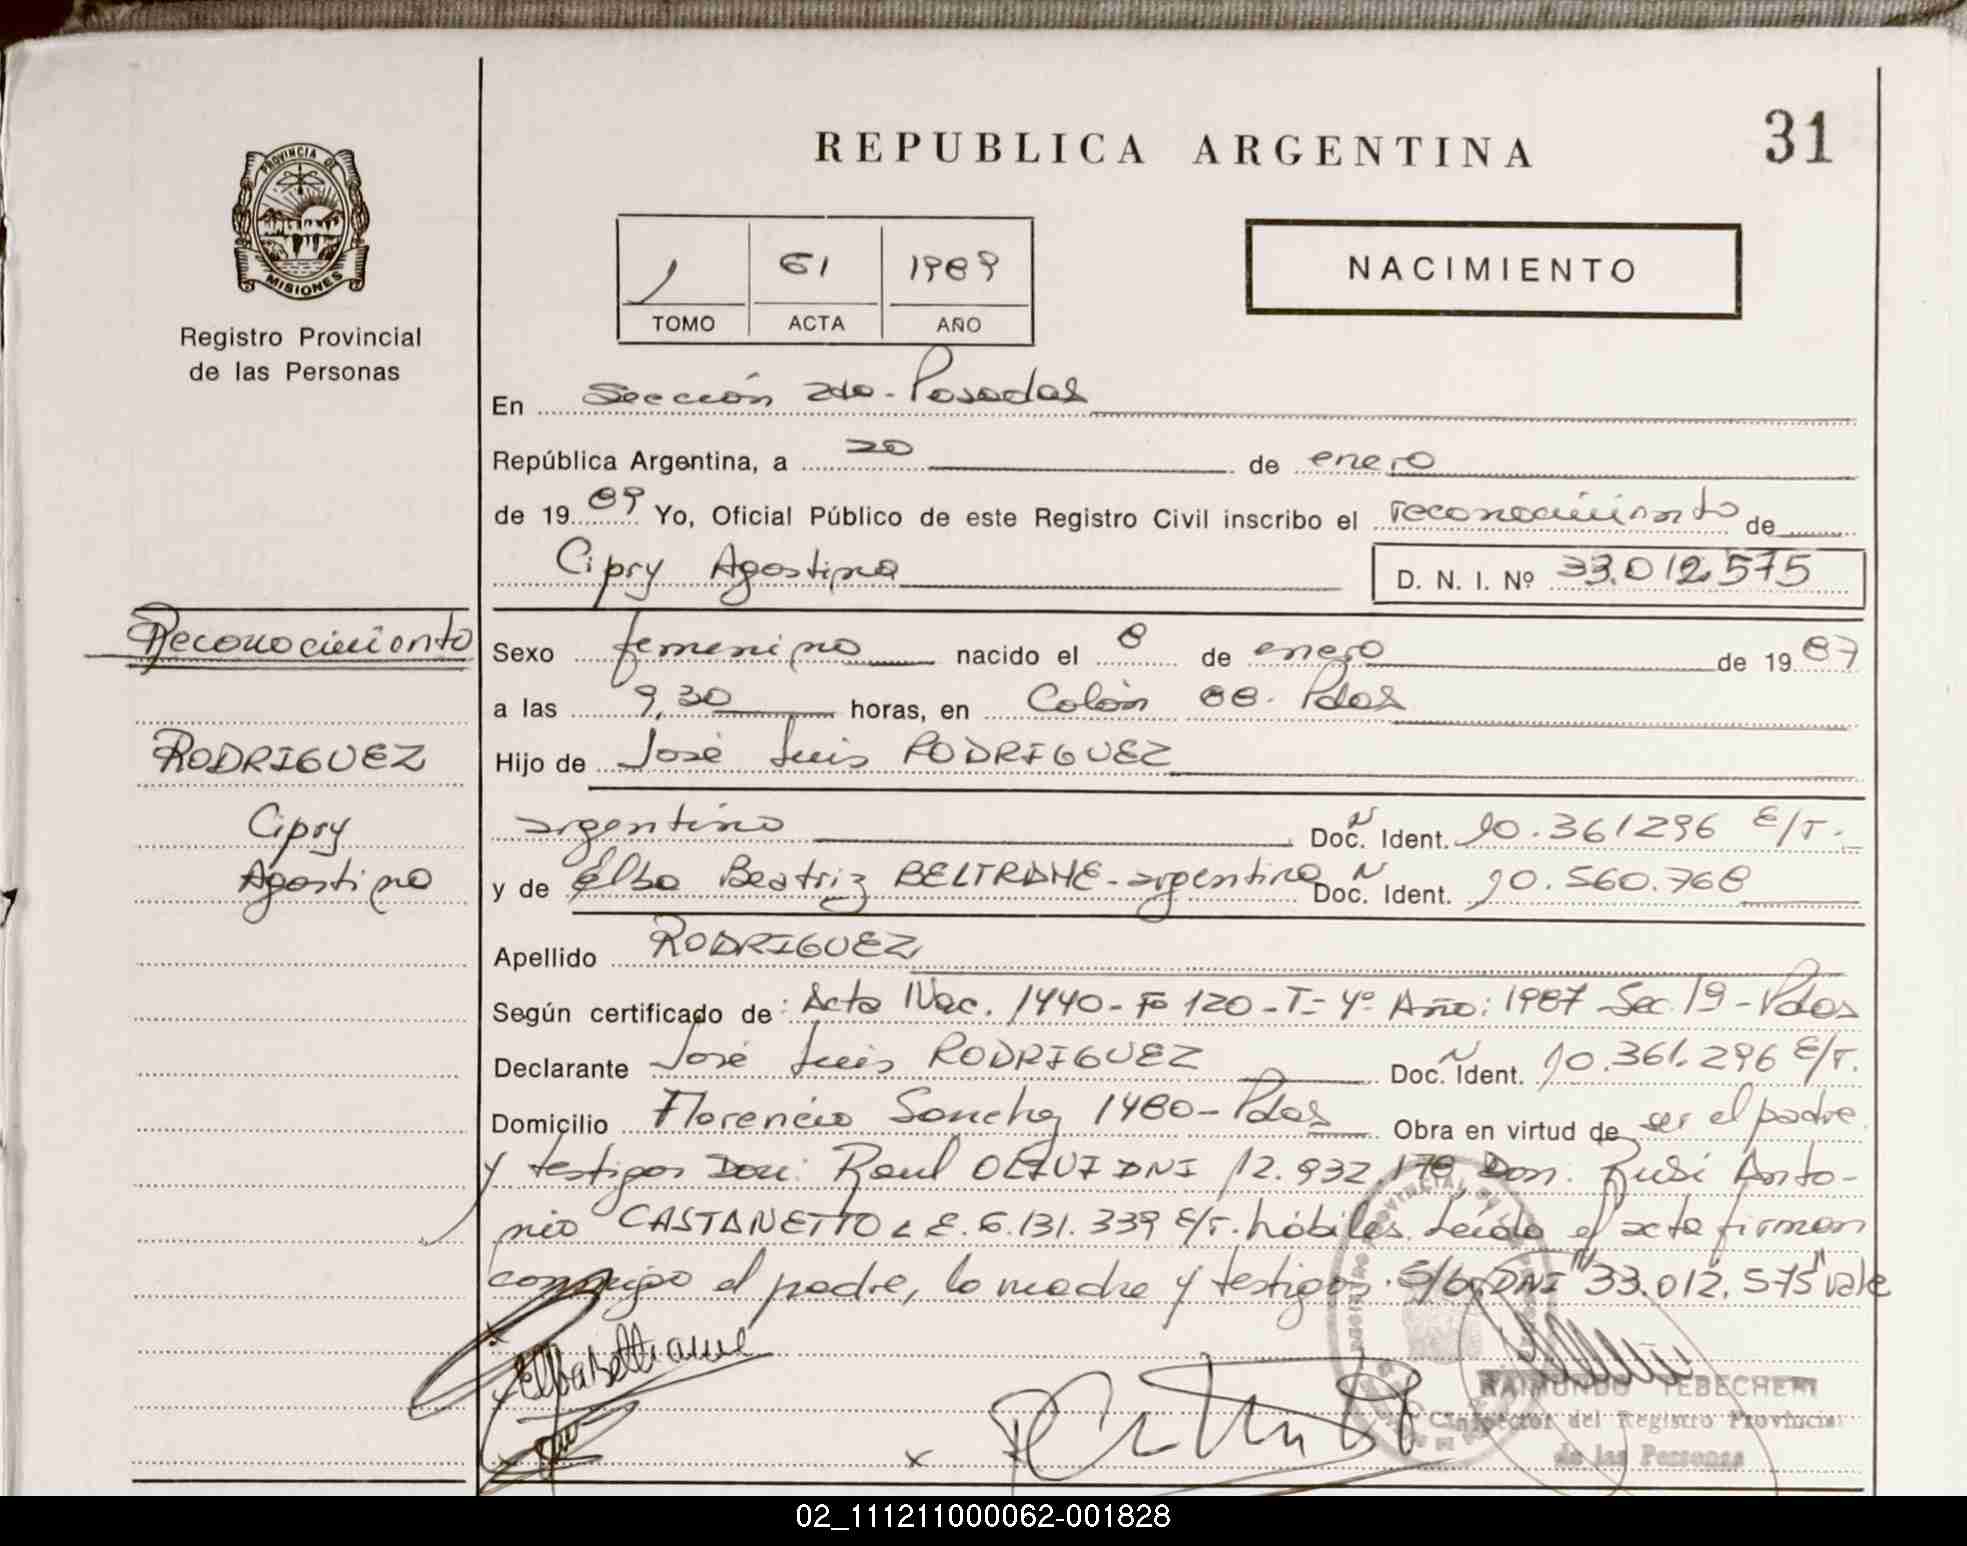 PROVINCIA DE
MISIONES
Registro Provincial
de las Personas
REPUBLICA ARGENTINA
31
1 61 1989
TOMO ACTA AÑO
NACIMIENTO
En Sección 2da - Posadas
República Argentina, a 20 de enero
de 1989 Yo, Oficial Público de este Registro Civil inscribo el reconocimiento de
Cipry Agostina D. N. I. Nº 33.012.575
Reconocimiento
Sexo femenino nacido el 8 de enero de 1987
a las 9,30 horas, en Colón 88. Pdas
RODRIGUEZ
Hijo de José Luis RODRIGUEZ
Cipry
argentino Doc. N Ident. 10.361296 E/T.
Agostina
y de Elba Beatriz BELTRAME - argentina Doc. N Ident. 10.560.768
Apellido RODRIGUEZ
Según certificado de: Acta Nac. 1440 - Fº 120 - T - 4º Año: 1987 Sec. 19 - Pdas
Declarante José Luis RODRIGUEZ Doc. N Ident. 10.361.296 E/T.
Domicilio Florencio Sanchez 1480 - Pdas Obra en virtud de ser el padre
y testigos Don: Raul DNI 12.932.178, Don: Antonio
CASTANETTO L E. 6.131.339 E/T. hábiles. Leída el acta firman
conmigo el padre, la madre y testigos. S/b. DNI "33.012.575" vale
Elba Beltrame
RAIMUNDO TEBECHERI
Inspector del Registro Provincial
de las Personas
02_111211000062-001828